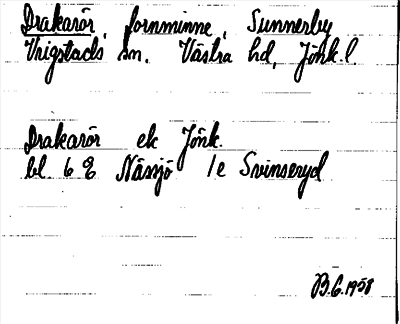 Drakarör, fornminne, Sunnerby
Vrigstads sn. Västra hd, Jönk.l.
Drakarör ek Jönk.
bl. 6 E Nässjö 1e Svinseryd
B.G. 1958